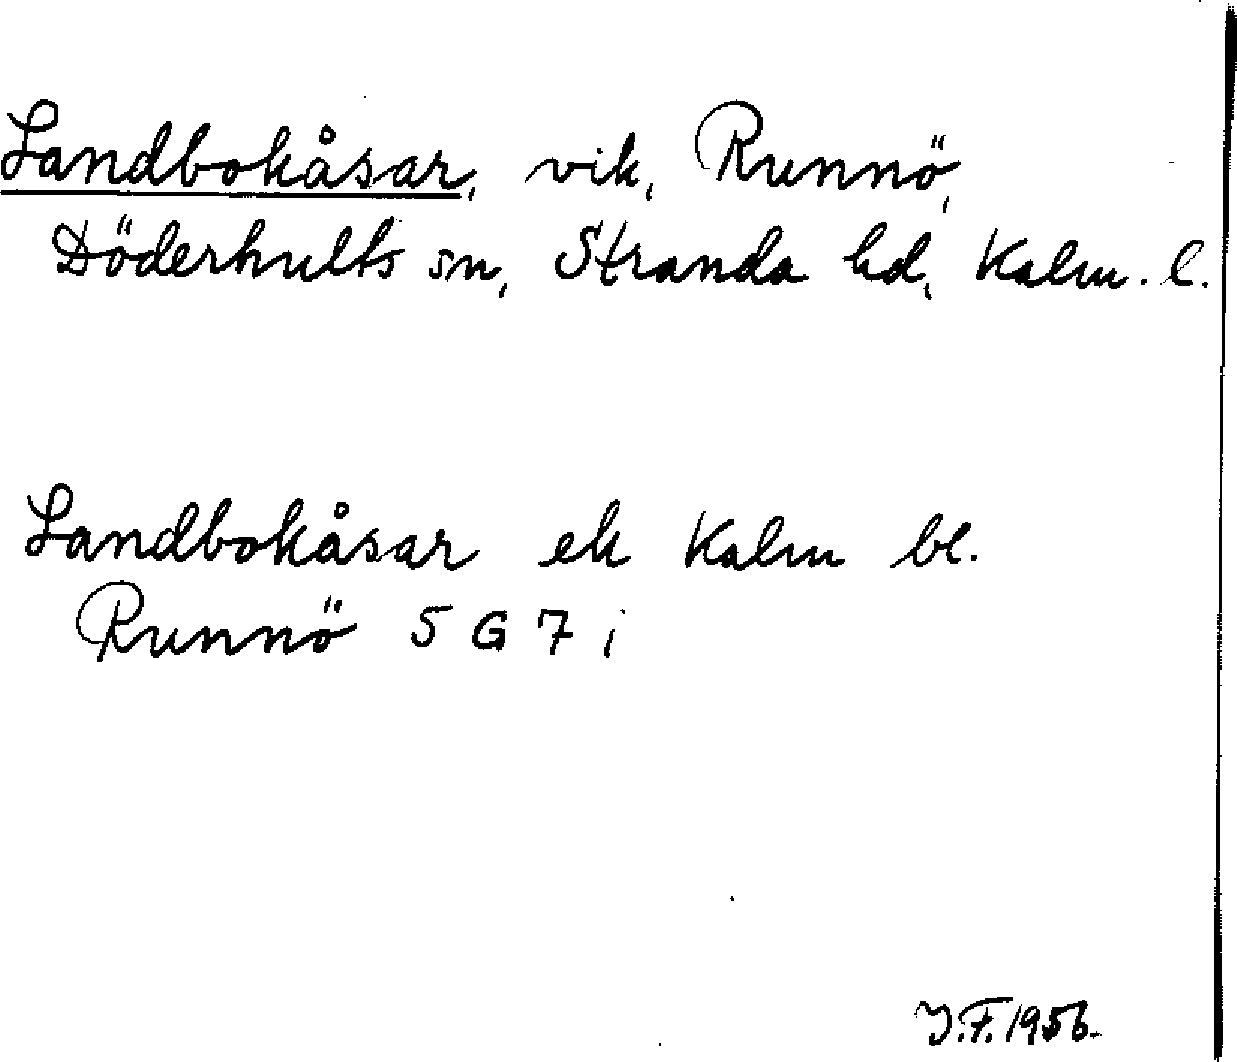 Landbokåsar, vik, Runnö,
Döderhults sn, Stranda hd, Kalm. l.
Landbokåsar ek Kalm bl.
Runnö 5 G 7 i
J.F. 1956.